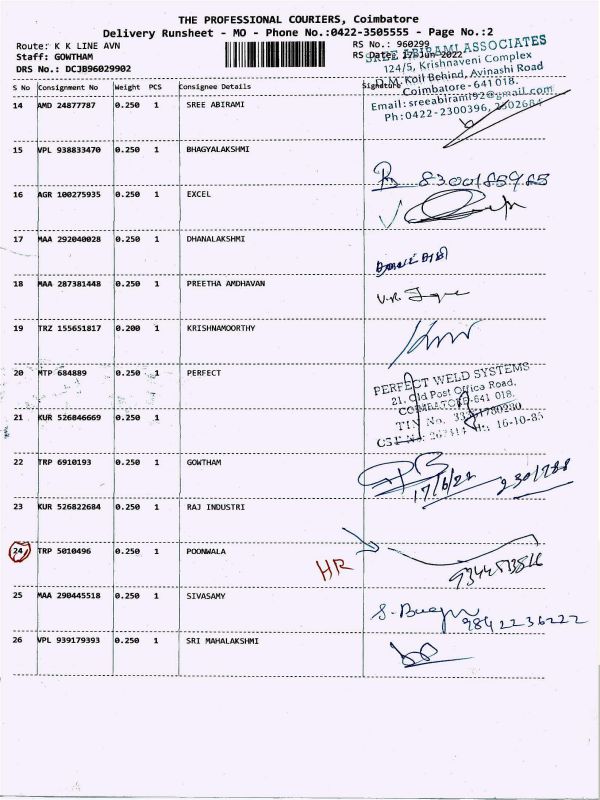 THE PROFESSIONAL COURIERS, Coimbatore
Delivery Runsheet - MO - Phone No.:0422-3505555 - Page No.:2
Route: K K LINE AVN
RS No.: 960299
Staff: GOWTHAM
RS Date: 17 Jun 2022
DRS No.: DCJB96029902
SREE ABIRAMI ASSOCIATES
124/5, Krishnaveni Complex
D.M. Koil Behind, Avinashi Road
Coimbatore - 641 018.
Email: sreeabirami92@gmail.com
Ph: 0422-2300396, 2502684
S No Consignment No Weight PCS Consignee Details Signature
14 AMD 24877787 0.250 1 SREE ABIRAMI
15 VPL 938833470 0.250 1 BHAGYALAKSHMI
16 AGR 100275935 0.250 1 EXCEL
17 MAA 292040028 0.250 1 DHANALAKSHMI
18 MAA 287381448 0.250 1 PREETHA AMDHAVAN
19 TRZ 155651817 0.200 1 KRISHNAMOORTHY
20 MTP 684889 0.250 1 PERFECT
PERFECT WELD SYSTEMS
21, Old Post Office Road,
COIMBATORE-641 018.
TIN No.
CST No. 16-10-85
21 KUR 526846669 0.250 1
22 TRP 6910193 0.250 1 GOWTHAM
17/6/22
23 KUR 526822684 0.250 1 RAJ INDUSTRI
24 TRP 5010496 0.250 1 POONWALA
HR
25 MAA 290445518 0.250 1 SIVASAMY
9842236222
26 VPL 939179393 0.250 1 SRI MAHALAKSHMI